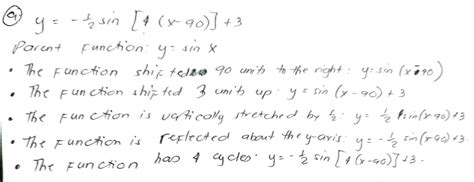 a) y = -½ sin [4 (x-90)] +3
Parent Function: y = sin x
• The Function shifted 90 units to the right: y = sin (x-90)
• The Function shifted 3 units up: y = sin (x-90) + 3
• The Function is vertically stretched by ½: y = ½ sin(x-90)+3
• The Function is reflected about the y-axis: y = -½ sin(x-90)+3.
• The Function has 4 cycles: y = -½ sin [4(x-90)] +3.